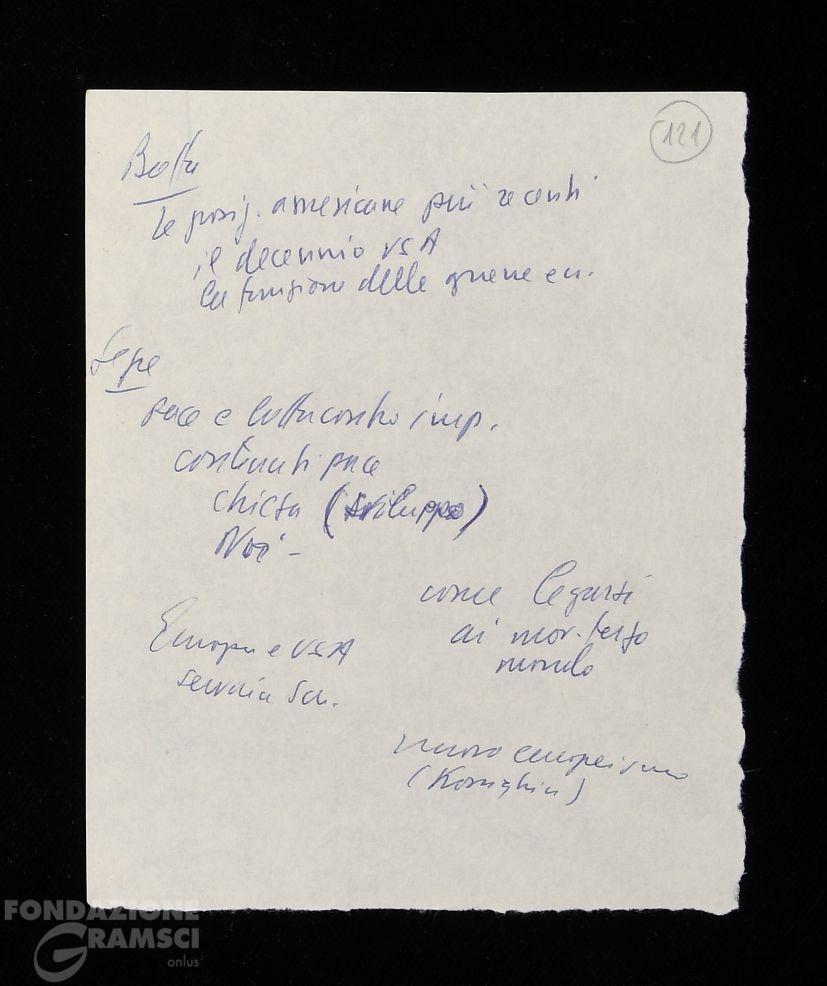 121
le posiz. americane più recenti
il decennio USA
la funzione delle guerre
Sepe
pace e lotta contro imp.
continenti pace
chiesa (sviluppo)
Noi -
come legarsi
ai mov. terzo
mondo
Europa e USA
nuovo europeismo
(Kossighin)
FONDAZIONE
GRAMSCI
onlus